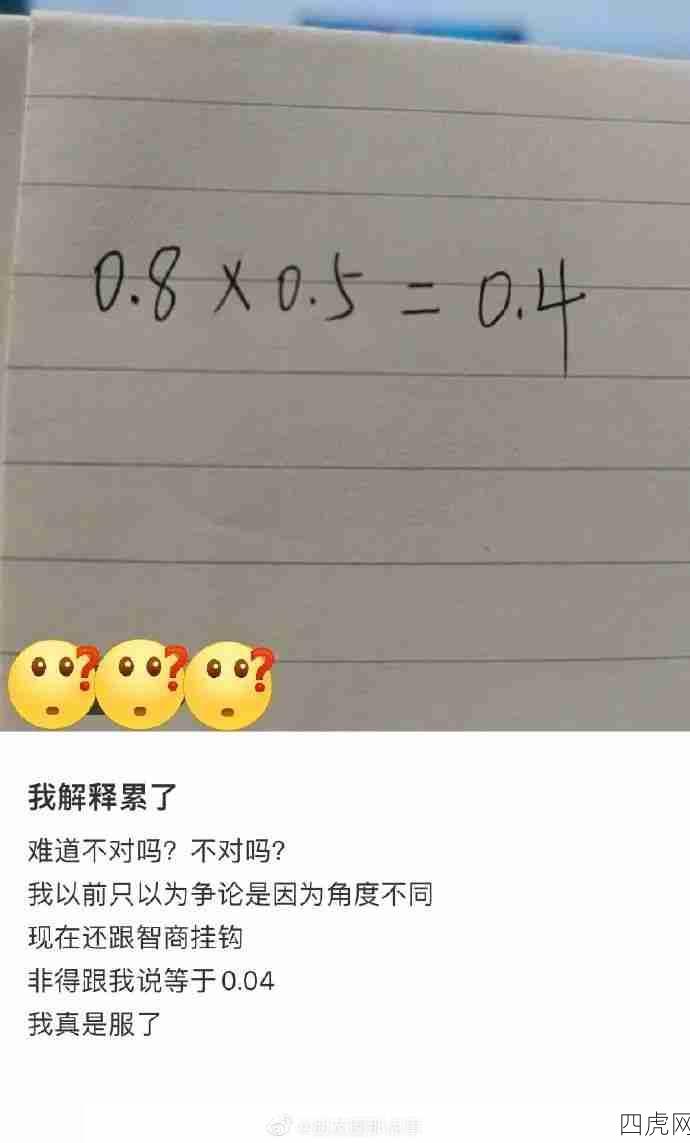 0.8×0.5=0.4
我解释累了
难道不对吗？不对吗？
我以前只以为争论是因为角度不同
现在还跟智商挂钩
非得跟我说等于0.04
我真是服了
四虎网